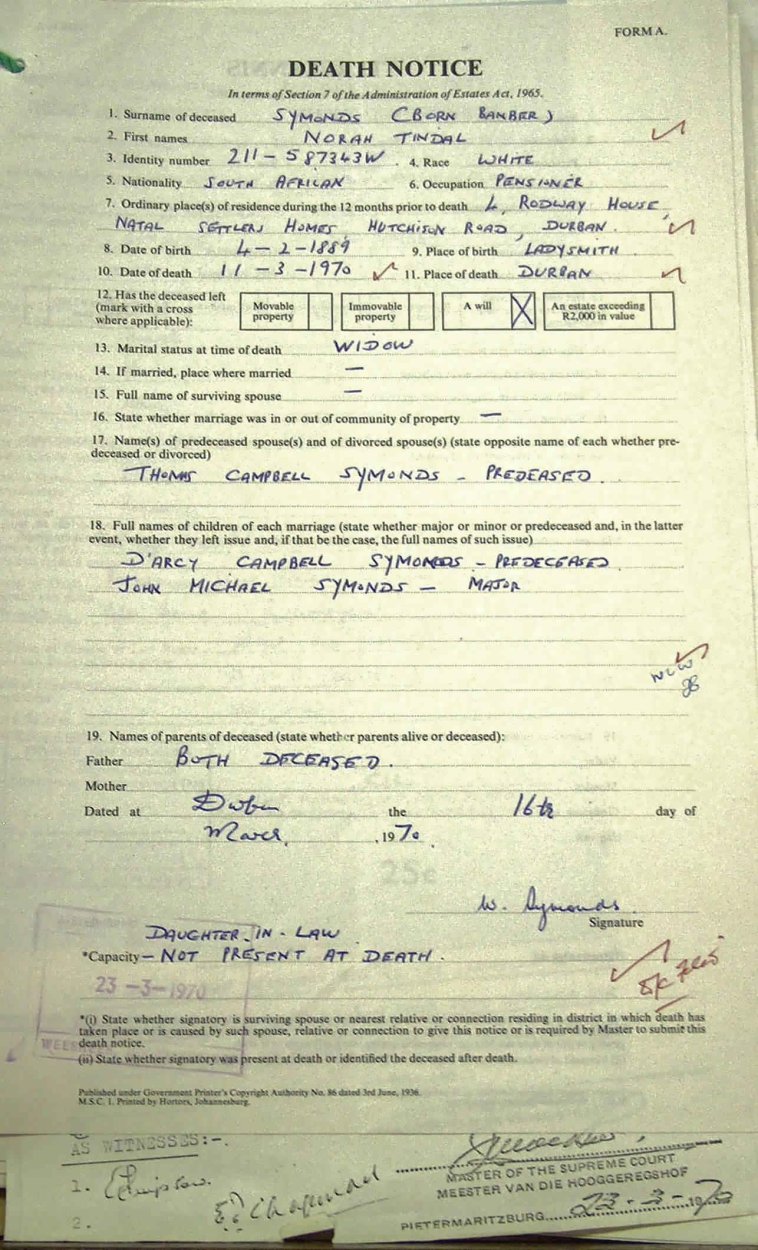 FORM A.
DEATH NOTICE
In terms of Section 7 of the Administration of Estates Act, 1965.
1. Surname of deceased SYMONDS (BORN BAMBER)
2. First names NORAH TINDAL
3. Identity number 211-587343W 4. Race WHITE
5. Nationality SOUTH AFRICAN 6. Occupation PENSIONER
7. Ordinary place(s) of residence during the 12 months prior to death 4, RODWAY HOUSE,
NATAL SETTLERS HOMES, HUTCHISON ROAD, DURBAN.
8. Date of birth 4-2-1889 9. Place of birth LADYSMITH
10. Date of death 11-3-1970 11. Place of death DURBAN
12. Has the deceased left
(mark with a cross
where applicable):
Movable property
Immovable property
A will X
An estate exceeding R2,000 in value
13. Marital status at time of death WIDOW
14. If married, place where married —
15. Full name of surviving spouse —
16. State whether marriage was in or out of community of property —
17. Name(s) of predeceased spouse(s) and of divorced spouse(s) (state opposite name of each whether pre-
deceased or divorced)
THOMAS CAMPBELL SYMONDS - PREDEASED.
18. Full names of children of each marriage (state whether major or minor or predeceased and, in the latter
event, whether they left issue and, if that be the case, the full names of such issue)
D'ARCY CAMPBELL SYMONDS - PREDECEASED
JOHN MICHAEL SYMONDS - MAJOR
19. Names of parents of deceased (state whether parents alive or deceased):
Father BOTH DECEASED.
Mother
Dated at Durban the 16th day of
March, 1970.
W. Symonds
Signature
DAUGHTER-IN-LAW
*Capacity - NOT PRESENT AT DEATH.
23-3-1970
*(i) State whether signatory is surviving spouse or nearest relative or connection residing in district in which death has
taken place or is caused by such spouse, relative or connection to give this notice or is required by Master to submit this
death notice.
(ii) State whether signatory was present at death or identified the deceased after death.
Published under Government Printer's Copyright Authority No. 86 dated 3rd June, 1936.
M.S.C. 1. Printed by Hortors, Johannesburg.
AS WITNESSES:-.
1.
2.
MASTER OF THE SUPREME COURT
MEESTER VAN DIE HOOGGEREGSHOF
PIETERMARITZBURG 23-3-1970